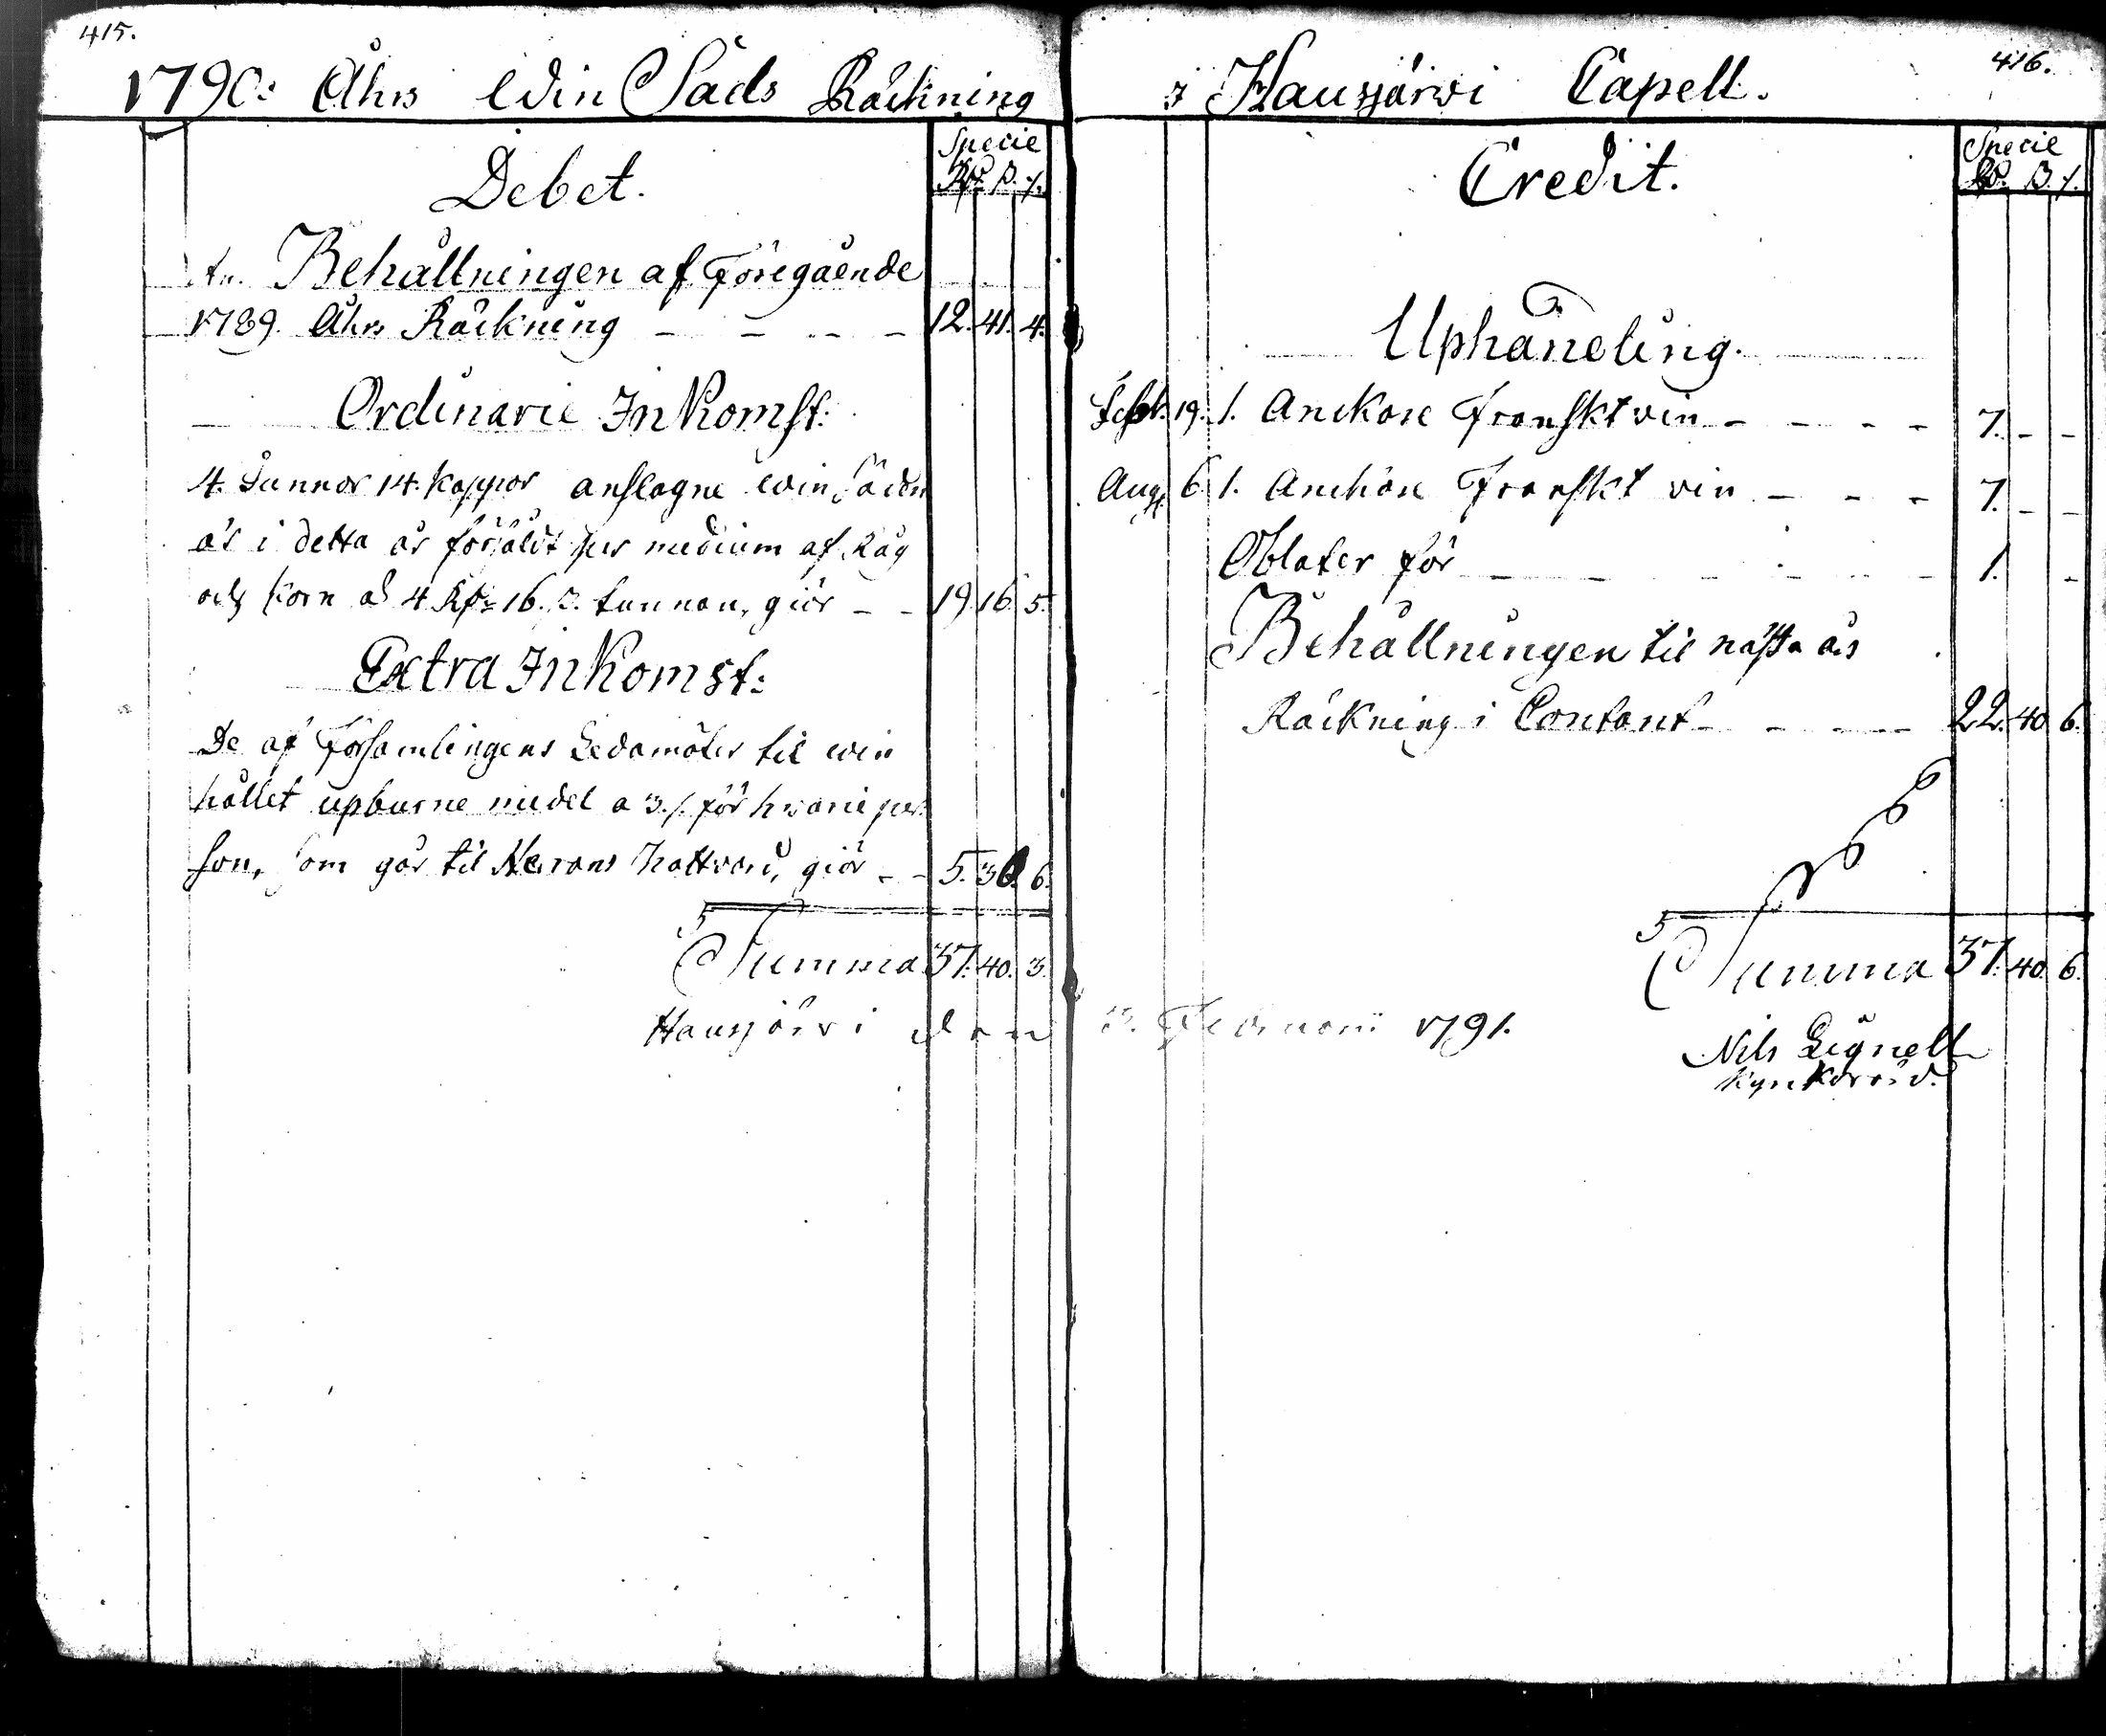 415.
1790: Åhrs Win Säds Räckning
Debet.
Specie
Rd. ß. /.
Behållningen af Föregående
1789. Åhrs Räckning - - - - 12. 41. 4.
Ordinarie InKomst:
4. Tunnor 14. kappor anslagne win Säden
är i detta år försåldt per medium af Råg
och korn a 4 Rd. 16. ß. tunnan, giör - - 19 16. 5.
Extra InKomst:
De af Församlingens Ledamöter til win
hållet upburne medel a 3./. för hvarie per
son, som går til Herrans Nattvard, giör - - 5. 30. 6.
Summa 37. 40. 3.
Hausjärvi den
416.
i Hausjärwi Capell.
Credit.
Specie
Rd. ß. /.
Uphandling.
Sept. 19. 1. Anckare Franskt vin - - - - 7. - -
Aug. 6. 1. Anckare Franskt vin - - - 7. - -
Oblater för - - - - - - 1. -
Behållningen til nästa års
Räckning i Contant - - - - 22. 40. 6.
Summa 37. 40. 6.
Februarii 1791.
Nils Lignell